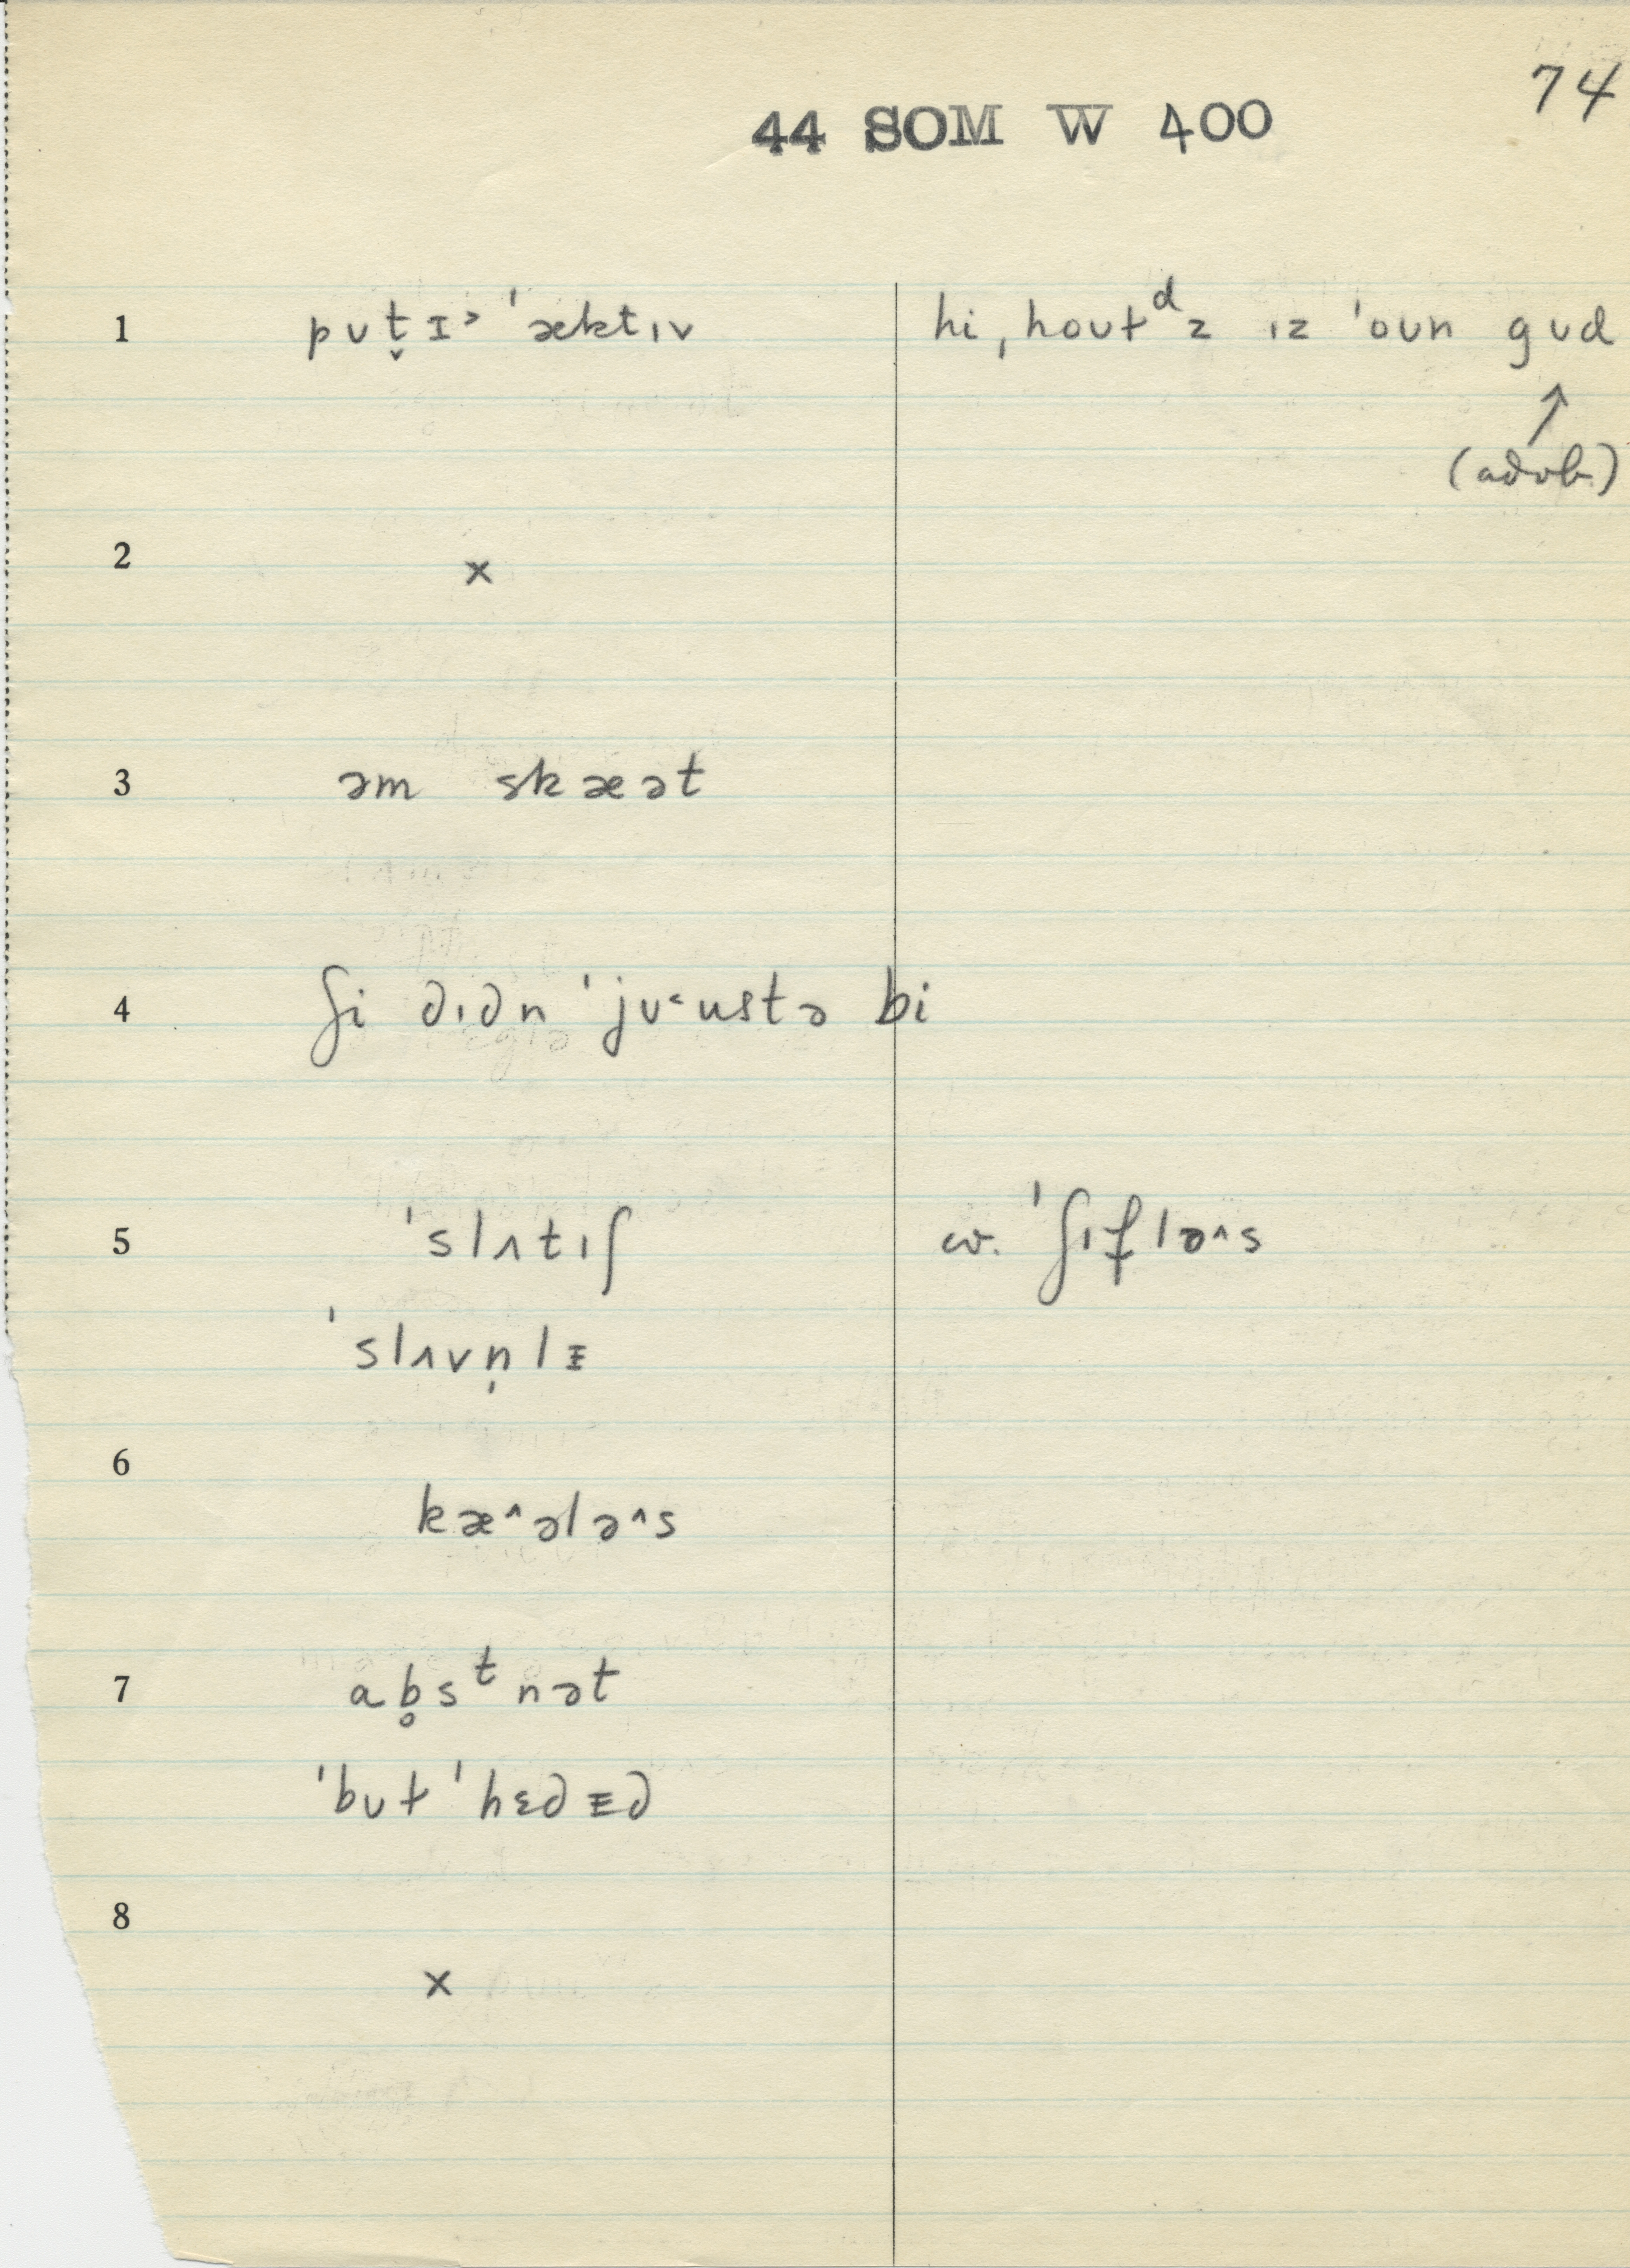 74
44 SOM W 400
1 pᴜt̬ɪ˃ ˈæktɪv hi ˌhoᴜtᵈz ɪz ˈoᴜn gᴜd
↑
(advb.)
2 ×
3 əm skæət
4 ʃi dɪdn ˈjᴜ˂ustə bi
5 ˈslʌtɪʃ cv. ˈʃɪfləˆs
ˈslʌvn̩lɪ
6
kæˆələˆs
7 ab̥sᵗnət
ˈbᴜt ˈhɛdɪd
8
×